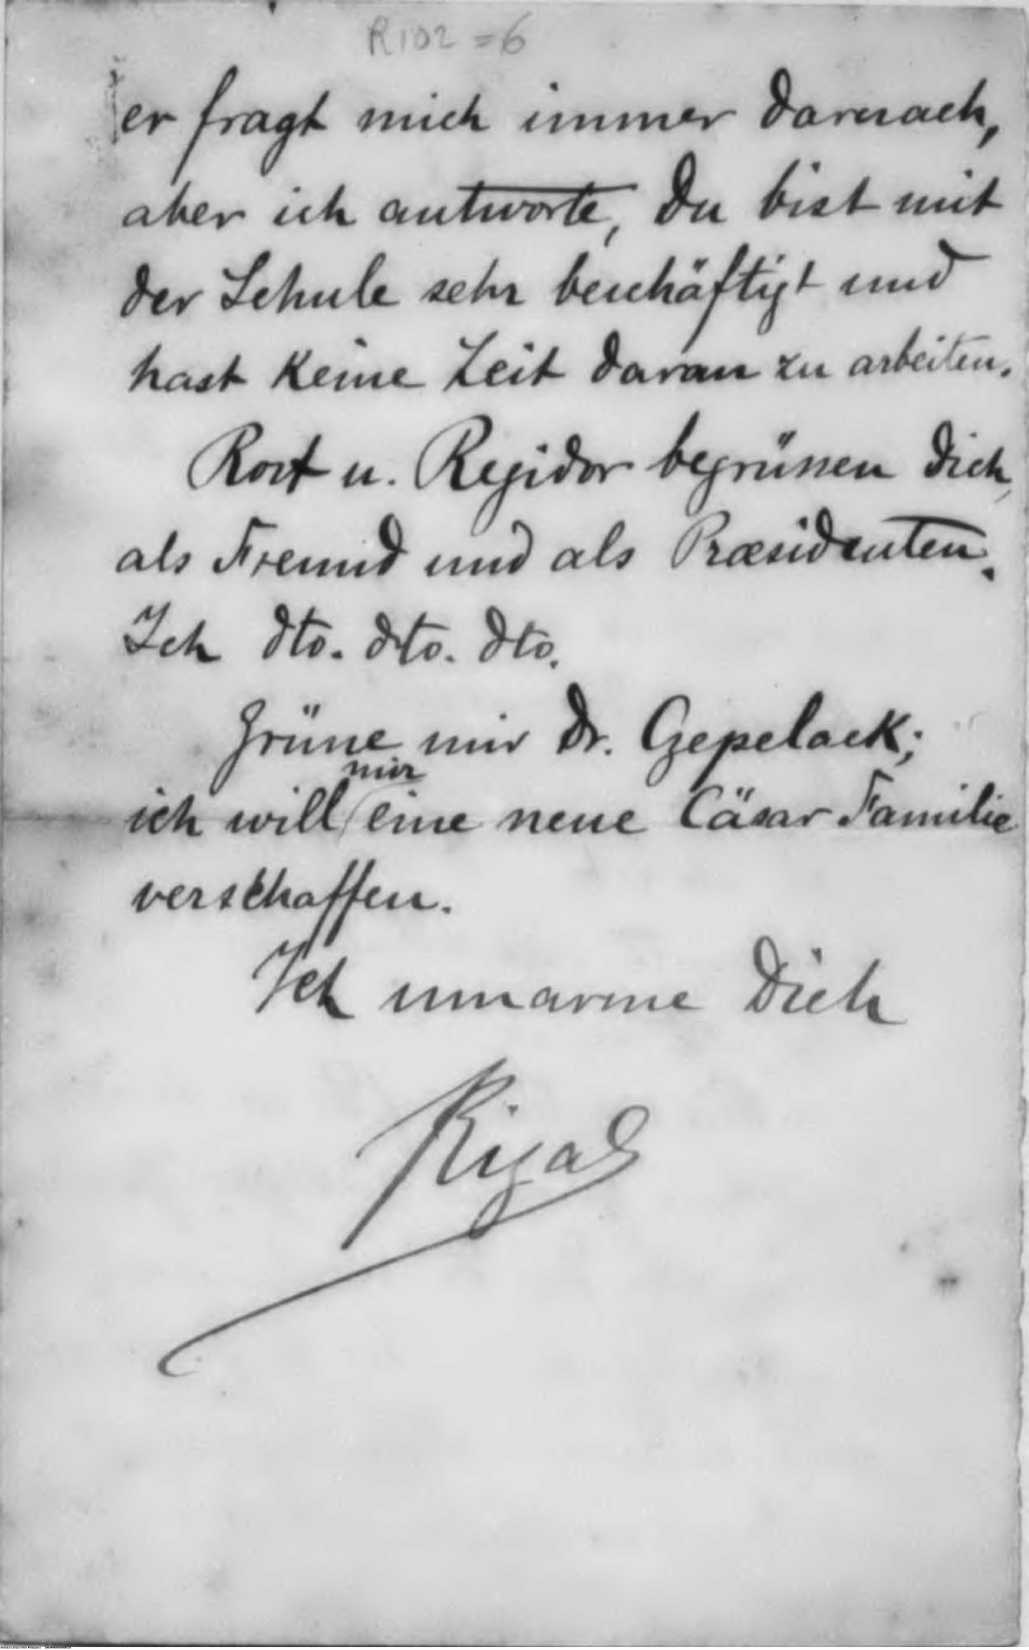 R102=6
er fragt mich immer darnach,
aber ich antworte, Du bist mit
der Schule sehr beschäftigt und
hast keine Zeit daran zu arbeiten.
Rost u. Regidor begrüssen Dich,
als Freund und als Præsidenten.
Ich dto. dto. dto.
Grüsse mir Dr. Czepelack;
mir
ich will eine neue Cäsar Familie
verschaffen.
Ich umarme Dich
Rizal